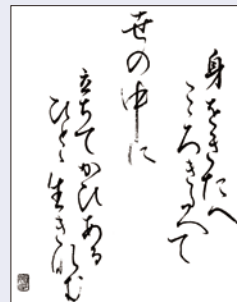 身をきたへ
こゝろきたへて
世の中に
立ちてかひある
ひとゝ生きなむ